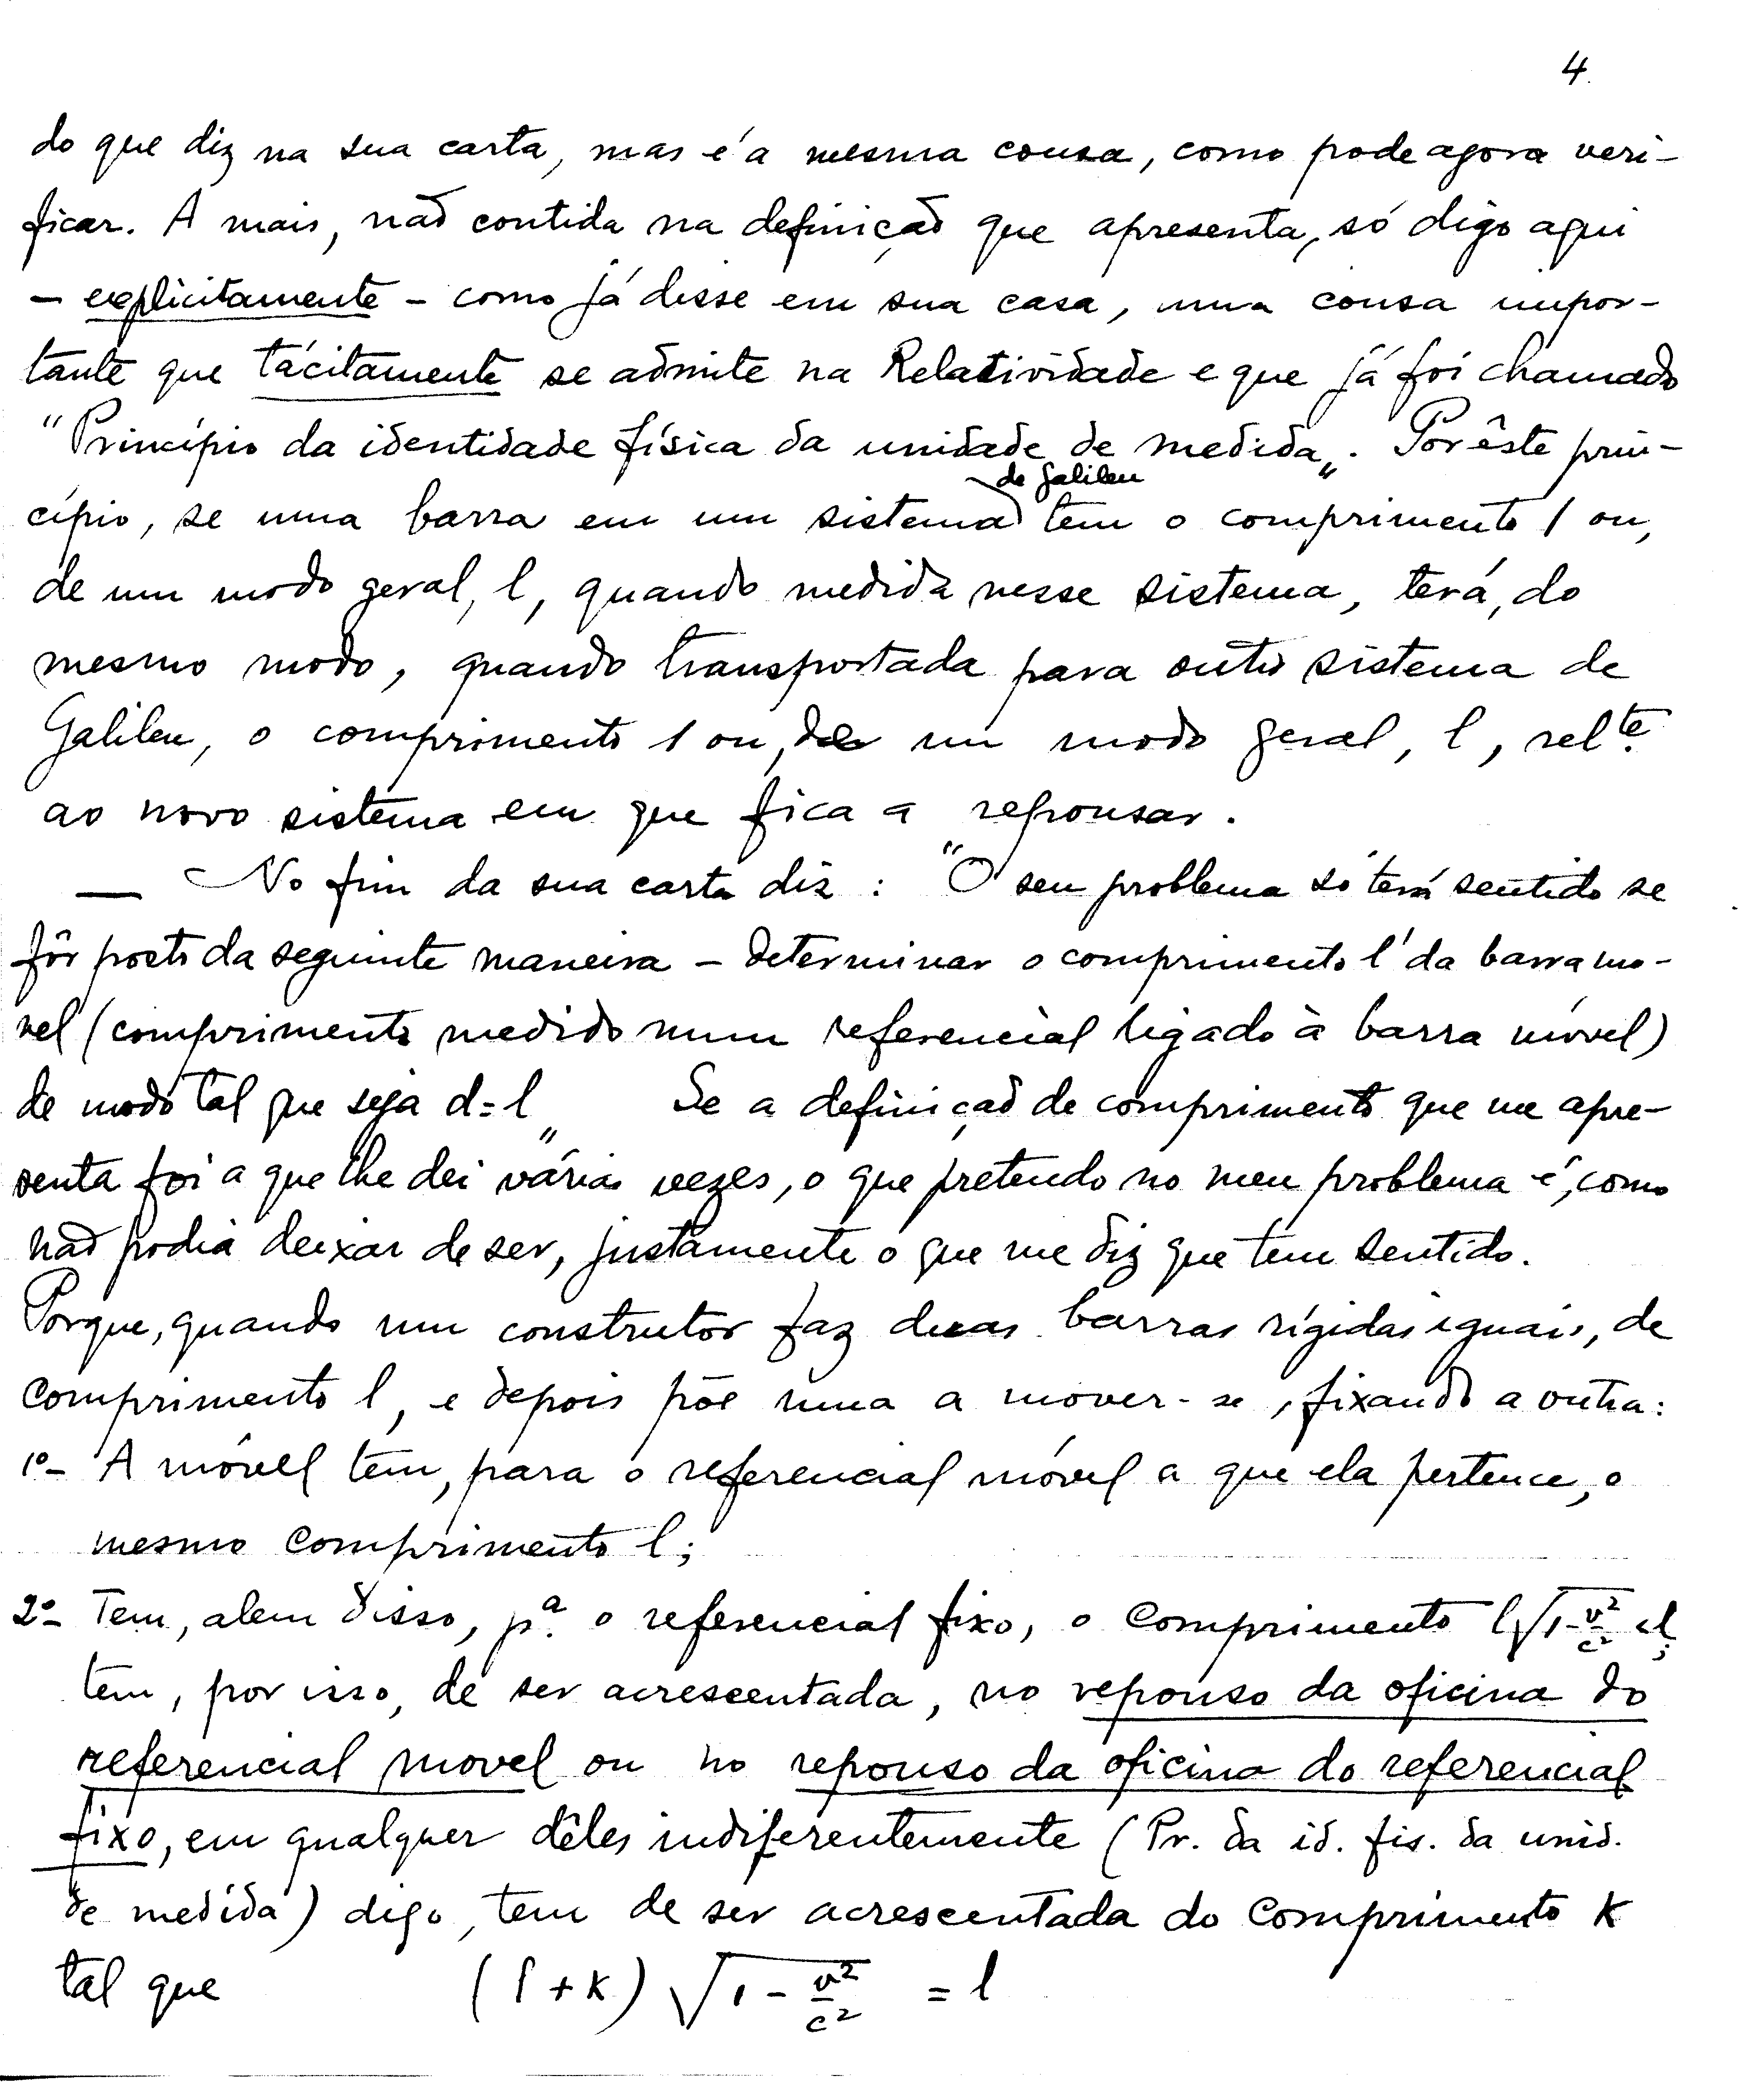 4.
do que diz na sua carta, mas é a mesma cousa, como pode agora veri-
ficar. A mais, não contida na definição que apresenta, só digo aqui
- explicitamente - como já disse em sua casa, uma cousa impor-
tante que tácitamente se admite na Relatividade e que já foi chamado
"Princípio da identidade física da unidade de medida". Por êste prin-
de Galileu
cípio, se uma barra em um sistema tem o comprimento 1 ou,
de um modo geral, l, quando medida nesse sistema, terá, do
mesmo modo, quando transportada para outro sistema de
Galileu, o comprimento 1 ou, de um modo geral, l, relte.
ao novo sistema em que fica a repousar.
— No fim da sua carta diz : "O seu problema só terá sentido se
fôr posto da seguinte maneira - determinar o comprimento l' da barra mo-
vel (comprimento medido num referencial ligado à barra móvel)
de modo tal que seja d=l" Se a definição de comprimento que me apre-
senta foi a que lhe dei várias vezes, o que pretendo no meu problema é, como
não podia deixar de ser, justamente o que me diz que tem sentido.
Porque, quando um construtor faz duas barras rígidas iguais, de
comprimento l, e depois põe uma a mover-se, fixando a outra:
1º- A móvel tem, para o referencial móvel a que ela pertence, o
mesmo comprimento l;
2º- Tem, alem disso, pª. o referencial fixo, o comprimento l√1-v²/c² <l;
tem, por isso, de ser acrescentada, no repouso da oficina do
referencial movel ou no repouso da oficina do referencial
fixo, em qualquer dêles indiferentemente (Pr. da id. fis. da unid.
de medida) digo, tem de ser acrescentada do comprimento K
tal que (l+K) √1 - v²/c² = l